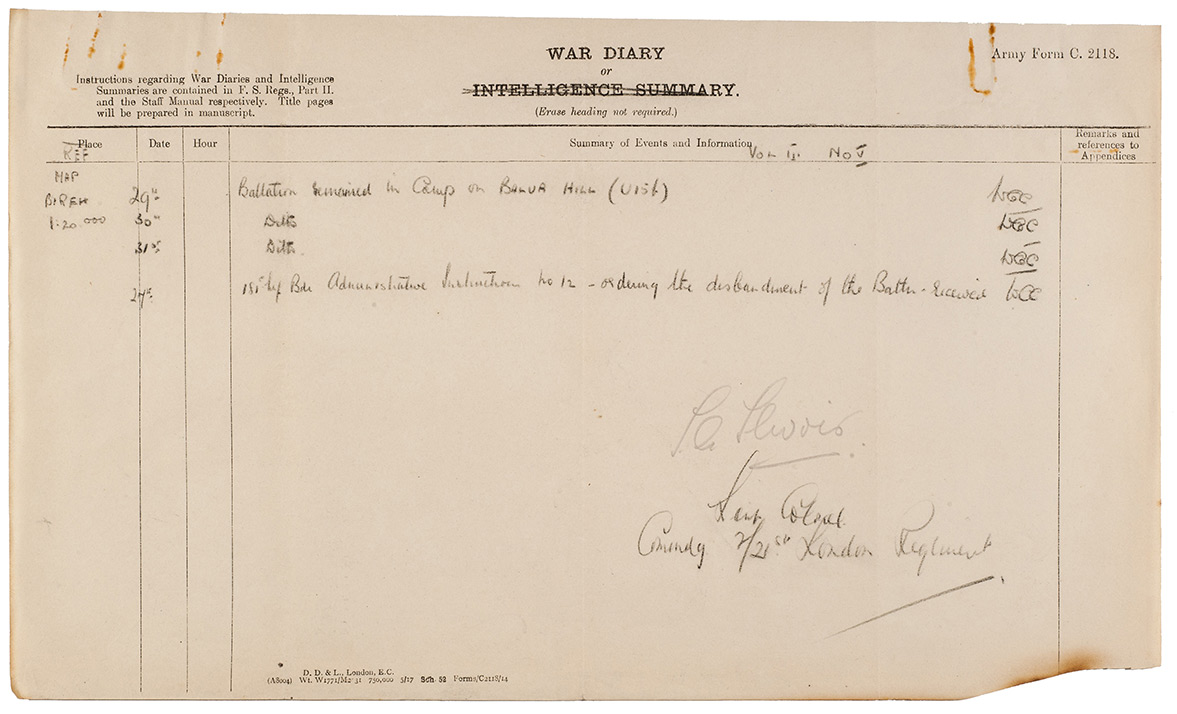 WAR DIARY
or
INTELLIGENCE SUMMARY.
(Erase heading not required.)
Army Form C. 2118.
Instructions regarding War Diaries and Intelligence
Summaries are contained in F. S. Regs., Part II.
and the Staff Manual respectively. Title pages
will be prepared in manuscript.
Place Date Hour Summary of Events and Information Remarks and references to Appendices
VOL II. No V
REF
MAP
BIREH
1:20.000
29th Battalion remained in Camp on BALUA HILL (U15b)
30th Ditto
31st Ditto
27th 181st Inf Bde Administrative Instructions No 12 - ordering the disbandment of the Battn - received
Lieut Colonel
Comndg 2/21st London Regiment
D. D. & L., London, E.C.
(A8004) Wt. W1771/M2 31 750,000 5/17 Sch. 52 Forms/C2118/14